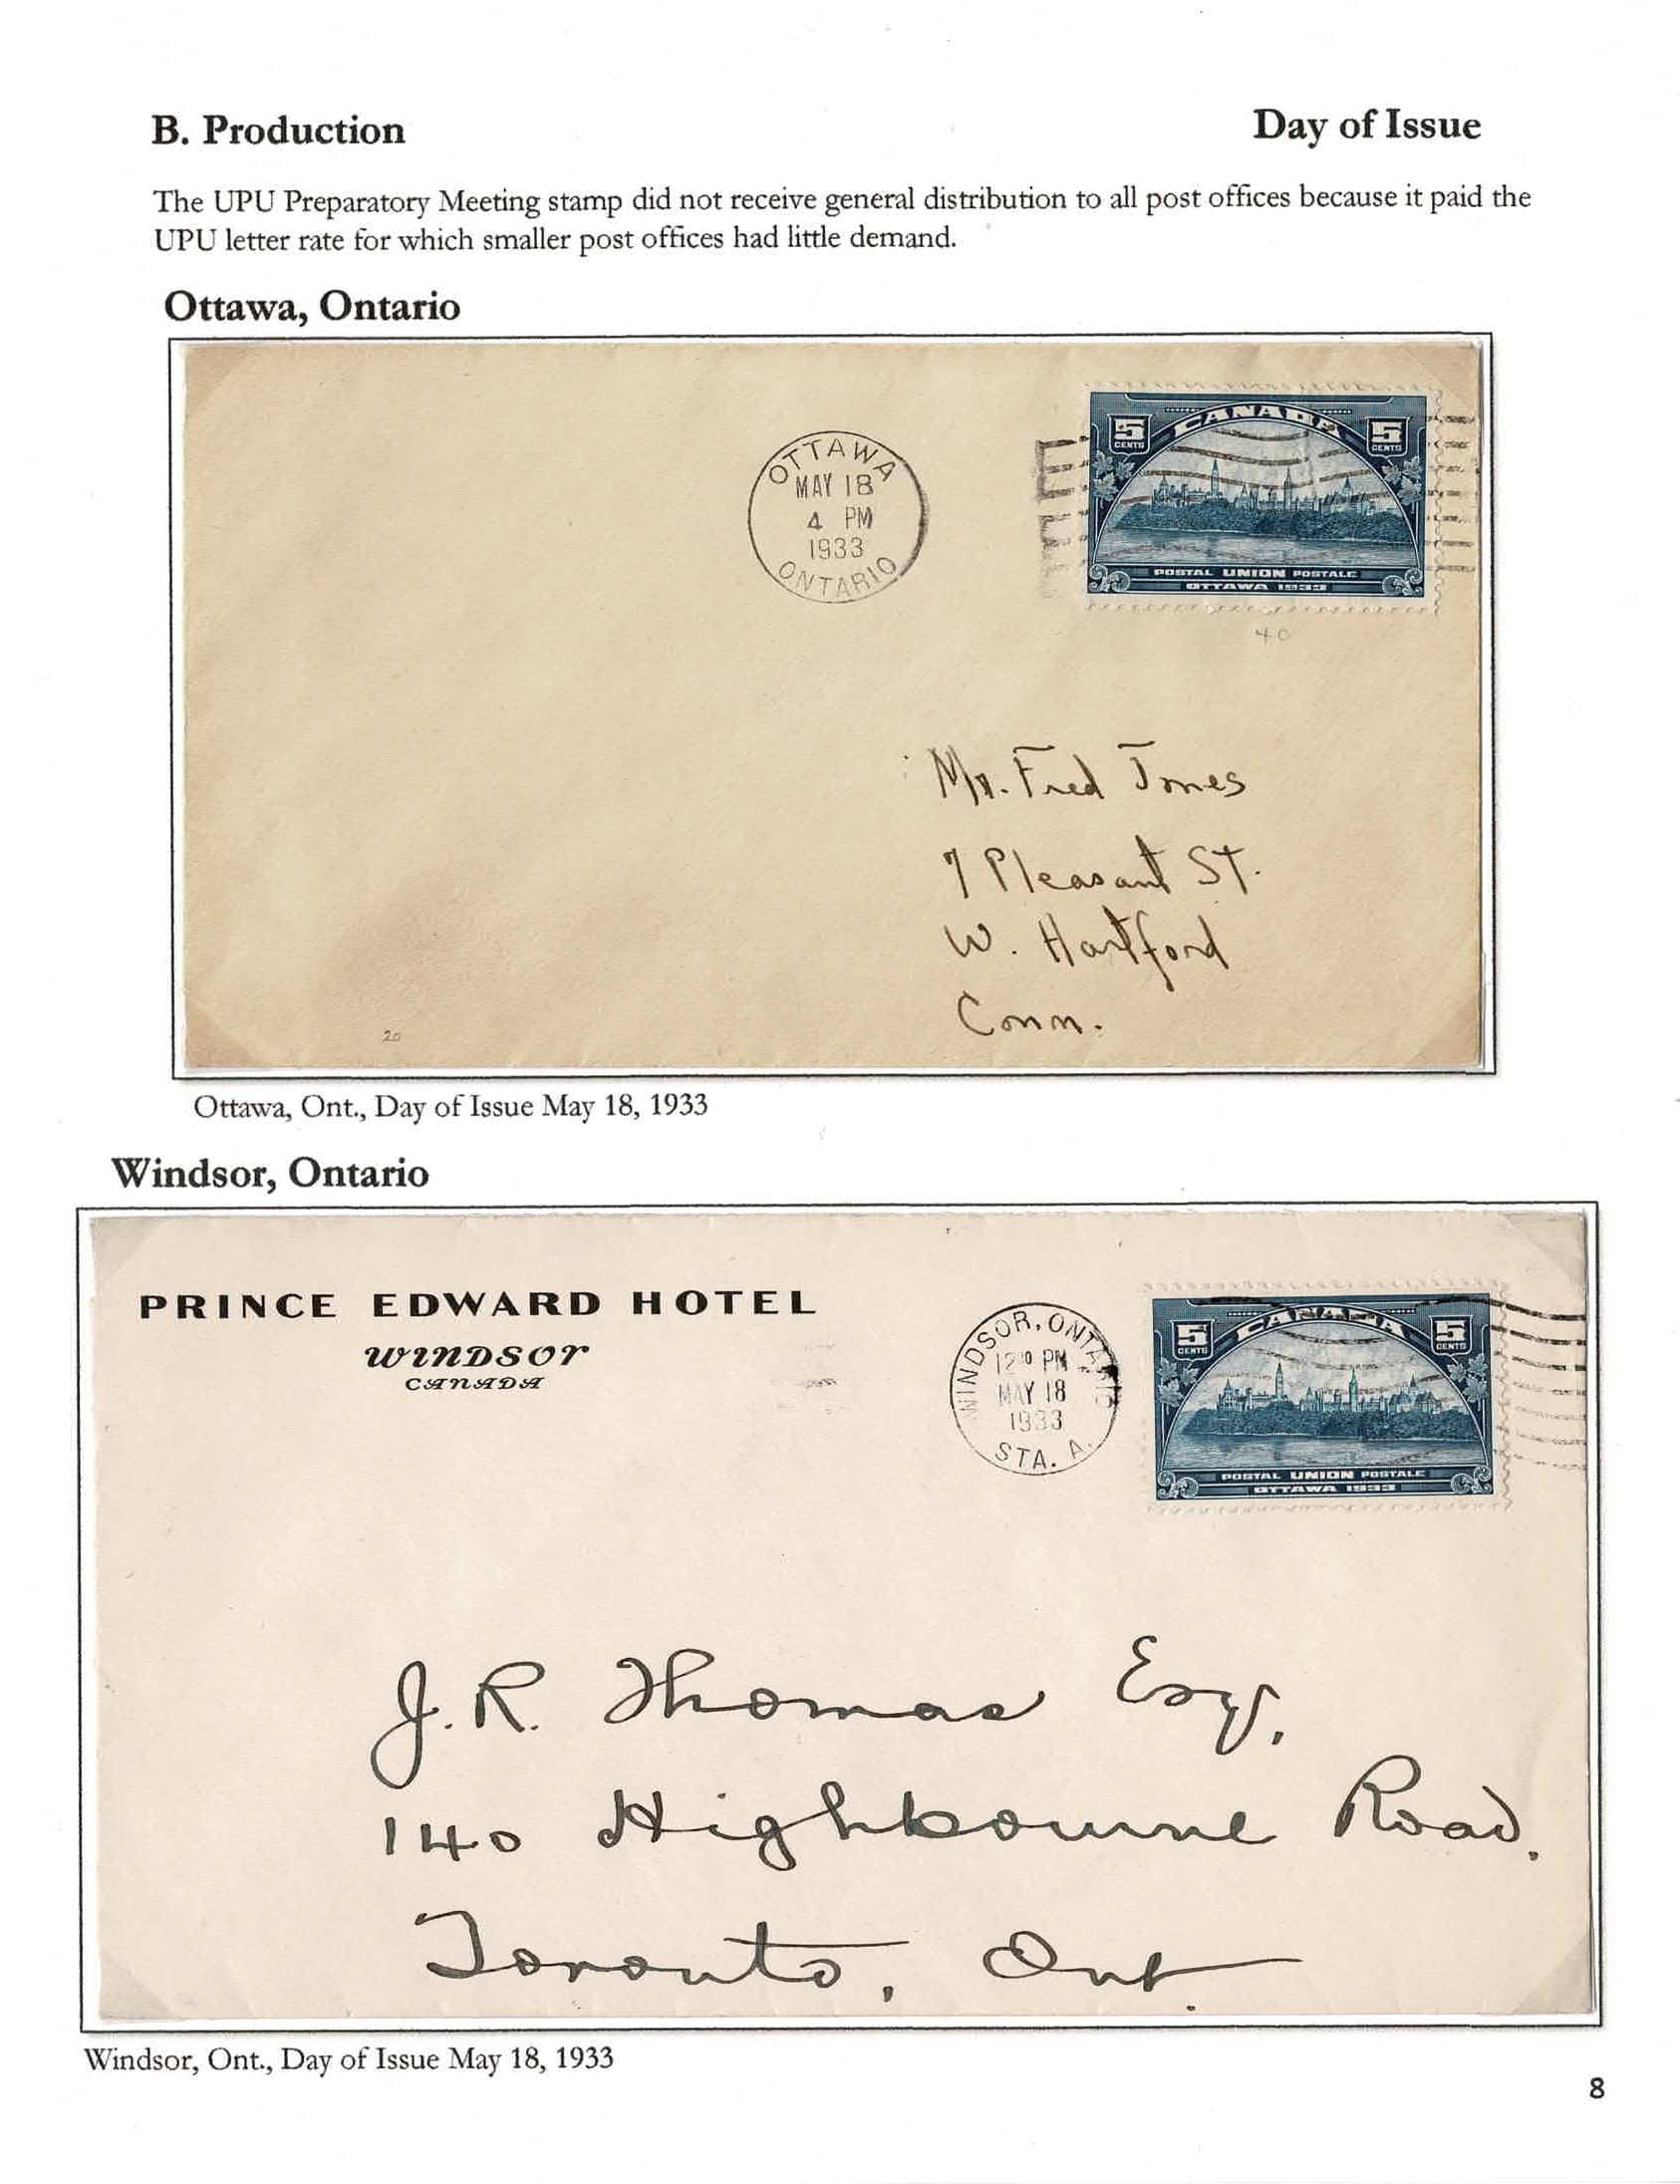 B. Production
Day of Issue
The UPU Preparatory Meeting stamp did not receive general distribution to all post offices because it paid the
UPU letter rate for which smaller post offices had little demand.
Ottawa, Ontario
OTTAWA
MAY 18
4 PM
1933
ONTARIO
CANADA
5 CENTS
5 CENTS
POSTAL UNION POSTALE
OTTAWA 1933
40
Mr. Fred Jones
7 Pleasant St.
W. Hartford
Conn.
20
Ottawa, Ont., Day of Issue May 18, 1933
Windsor, Ontario
PRINCE EDWARD HOTEL
WINDSOR
CANADA
WINDSOR, ONTARIO
12³⁰ PM
MAY 18
1933
STA. A.
CANADA
5 CENTS
5 CENTS
POSTAL UNION POSTALE
OTTAWA 1933
J. R. Thomas Esq.
140 Highbourne Road.
Toronto, Ont.
Windsor, Ont., Day of Issue May 18, 1933
8